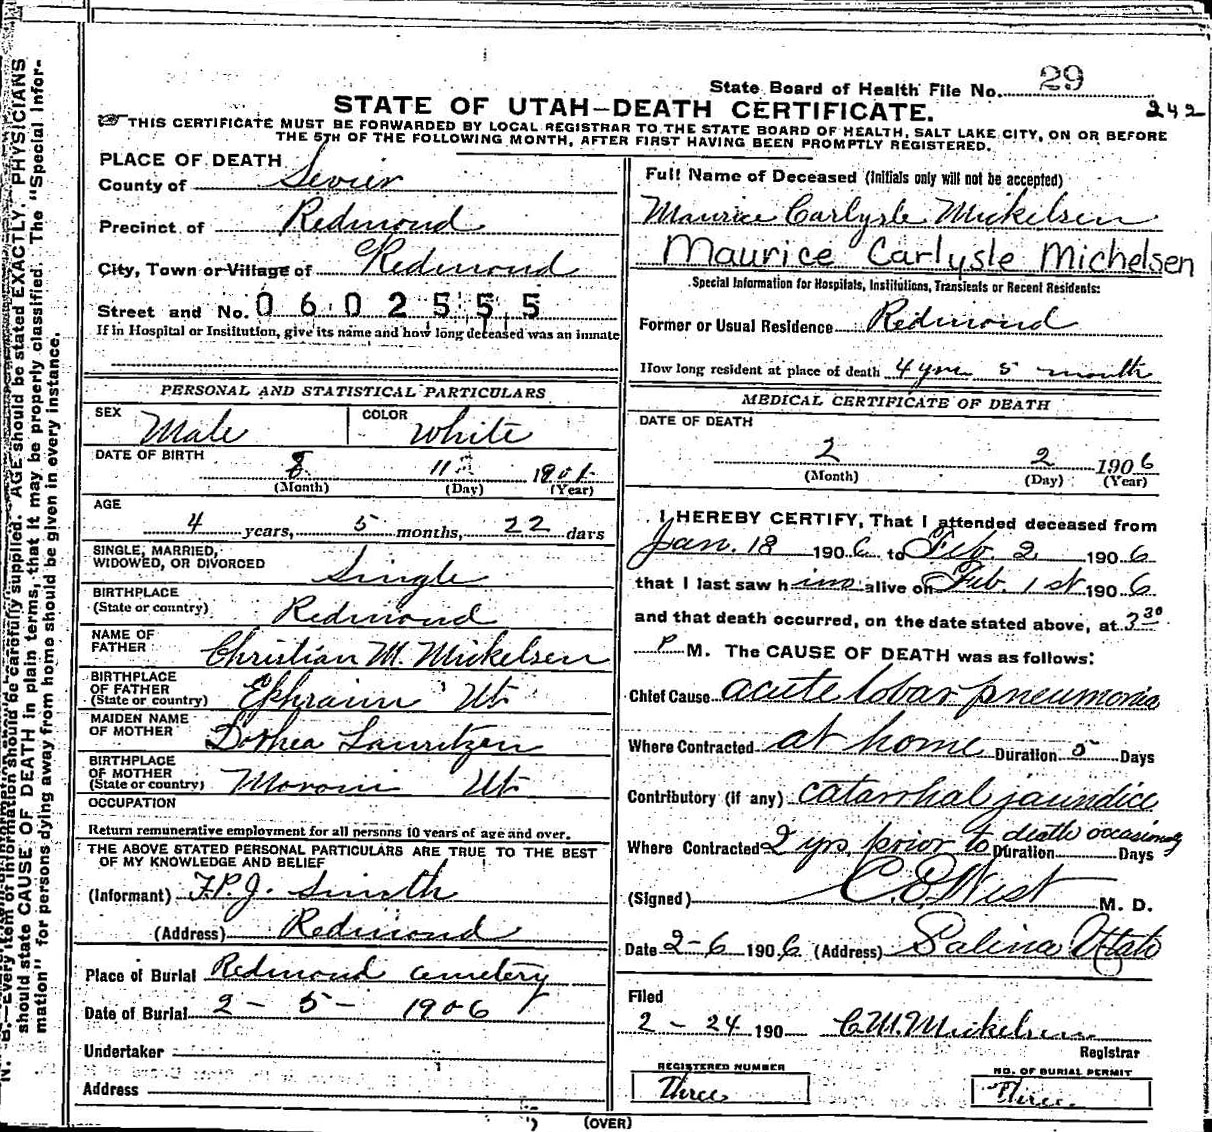 State Board of Health File No. 29
STATE OF UTAH—DEATH CERTIFICATE.
242
☞ THIS CERTIFICATE MUST BE FORWARDED BY LOCAL REGISTRAR TO THE STATE BOARD OF HEALTH, SALT LAKE CITY, ON OR BEFORE
THE 5TH OF THE FOLLOWING MONTH, AFTER FIRST HAVING BEEN PROMPTLY REGISTERED.
PLACE OF DEATH
County of Sevier
Precinct of Redmond
City, Town or Village of Redmond
Street and No. 0602555
If in Hospital or Institution, give its name and how long deceased was an inmate
PERSONAL AND STATISTICAL PARTICULARS
SEX Male COLOR White
DATE OF BIRTH
8 11 1901
(Month) (Day) (Year)
AGE
4 years, 5 months, 22 days
SINGLE, MARRIED,
WIDOWED, OR DIVORCED Single
BIRTHPLACE
(State or country) Redmond
NAME OF
FATHER Christian M. Mickelsen
BIRTHPLACE
OF FATHER
(State or country) Ephraim Ut
MAIDEN NAME
OF MOTHER Dorthea Lauritzen
BIRTHPLACE
OF MOTHER
(State or country) Moroni Ut
OCCUPATION
Return remunerative employment for all persons 10 years of age and over.
THE ABOVE STATED PERSONAL PARTICULARS ARE TRUE TO THE BEST
OF MY KNOWLEDGE AND BELIEF
(Informant) F.P.J. Smith
(Address) Redmond
Place of Burial Redmond cemetery
Date of Burial 2 - 5 - 1906
Undertaker
Address
Full Name of Deceased (Initials only will not be accepted)
Maurice Carlysle Mickelsen
Maurice Carlysle Michelsen
Special Information for Hospitals, Institutions, Transients or Recent Residents:
Former or Usual Residence Redmond
How long resident at place of death 4 yrs 5 month
MEDICAL CERTIFICATE OF DEATH
DATE OF DEATH
2 2 1906
(Month) (Day) (Year)
I HEREBY CERTIFY, That I attended deceased from
Jan. 18 1906 to Feb. 2 1906
that I last saw him alive on Feb. 1st 1906
and that death occurred, on the date stated above, at 3 30
P M. The CAUSE OF DEATH was as follows:
Chief Cause acute lobar pneumonia
Where Contracted at home Duration 5 Days
Contributory (if any) catarrhal jaundice
Where Contracted 2 yrs. prior to death occasionly Duration Days
(Signed) C. E. West M. D.
Date 2-6 1906 (Address) Salina Utah
Filed
2 - 24 190 C. M. Mickelsen
Registrar
REGISTERED NUMBER
Three
NO. OF BURIAL PERMIT
Three
(OVER)
N. B.—Every item of information should be carefully supplied. AGE should be stated EXACTLY. PHYSICIANS
should state CAUSE OF DEATH in plain terms, that it may be properly classified. The "Special Infor-
mation" for persons dying away from home should be given in every instance.